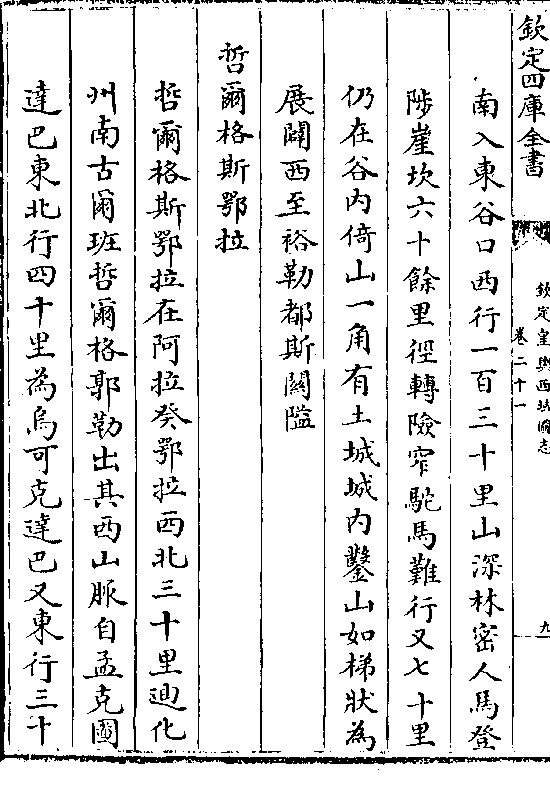 欽定四庫全書
欽定皇輿西域圖志
卷二十一
九
南入東谷口西行一百三十里山深林密人馬登
陟崖坎六十餘里徑轉險窄駝馬難行又七十里
仍在谷内倚山一角有土城城内鑿山如梯狀為
展闢西至裕勒都斯闗隘
哲爾格斯鄂拉
哲爾格斯鄂拉在阿拉癸鄂拉西北三十里廸化
州南古爾班哲爾格郭勒出其西山脈自孟克圖
達巴東北行四十里為烏可克達巴又東行三十